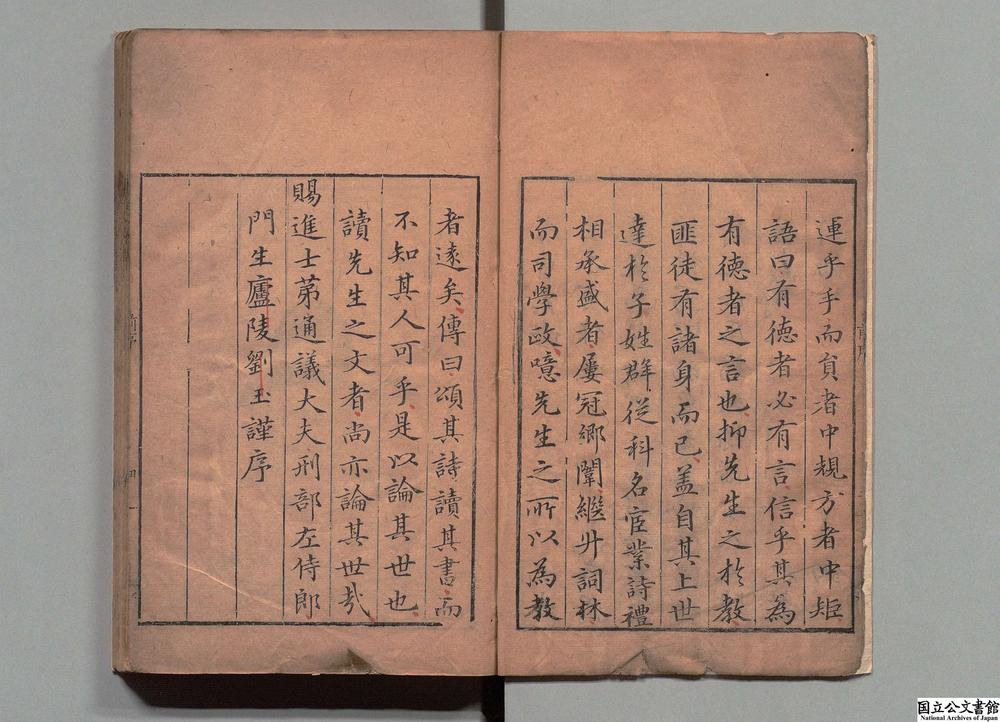 運乎手而負者中規方者中矩
語曰有德者必有言信乎其為
有德者之言也抑先生之於教
匪徒有諸身而已盖自其上世
達於子姓群從科名宦業詩禮
相承盛者屢冠鄉闈繼升詞林
而司學政噫先生之所以為教
者遠矣傳曰頌其詩讀其書而
不知其人可乎是以論其世也
讀先生之文者尚亦論其世哉
賜進士第通議大夫刑部左侍郎
門生廬陵劉玉謹序
前序
国立公文書館
National Archives of Japan